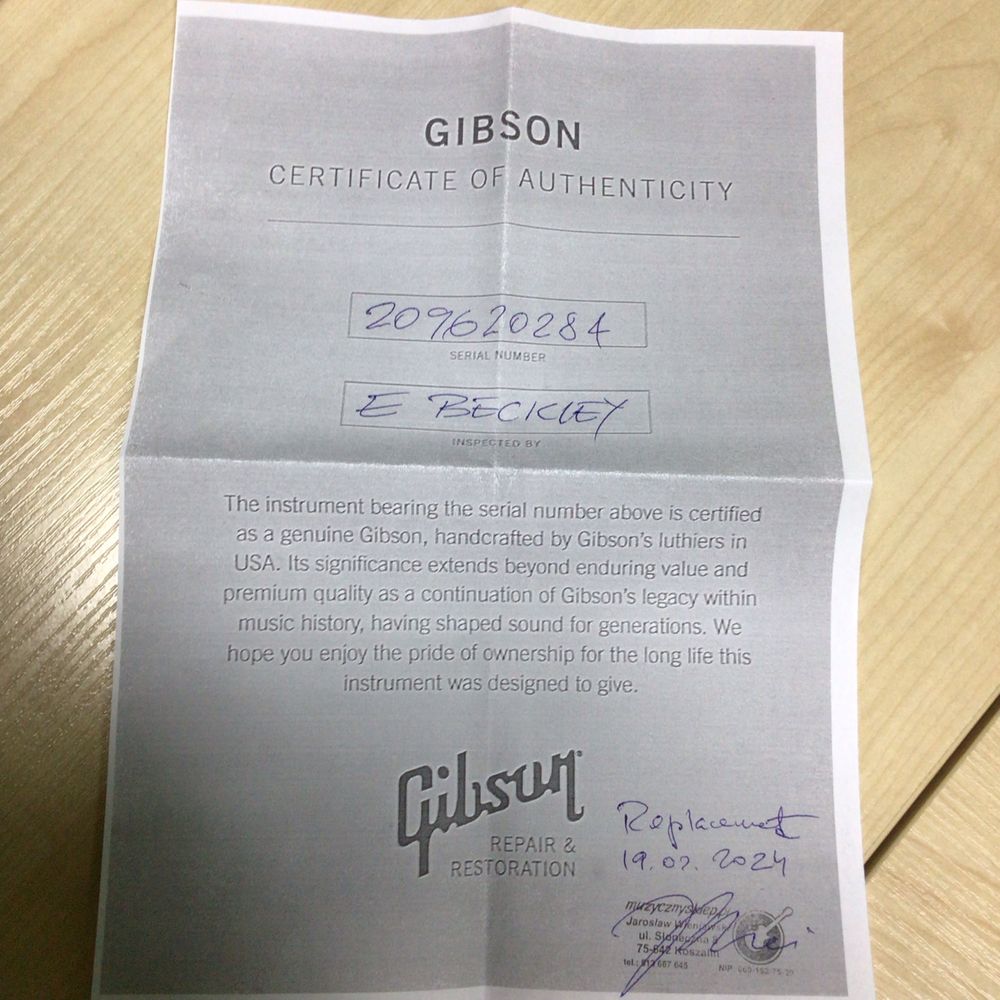 GIBSON
CERTIFICATE OF AUTHENTICITY
209620284
SERIAL NUMBER
E BECKLEY
INSPECTED BY
The instrument bearing the serial number above is certified
as a genuine Gibson, handcrafted by Gibson's luthiers in
USA. Its significance extends beyond enduring value and
premium quality as a continuation of Gibson's legacy within
music history, having shaped sound for generations. We
hope you enjoy the pride of ownership for the long life this
instrument was designed to give.
Gibson
REPAIR &
RESTORATION
Replacement
19.02.2024
Jarosław
ul.
75-642 Koszalin
tel.: 667 645
NIP